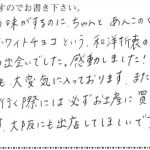 すのでお書き下さい。
味がするのに、ちゃんとあんこの
ホワイトチョコという、和洋折衷の
出会いでした。感動しました!
も、大変気に入っております。また
行く際には必ずお土産に買
す。大阪にも出店してほしいで